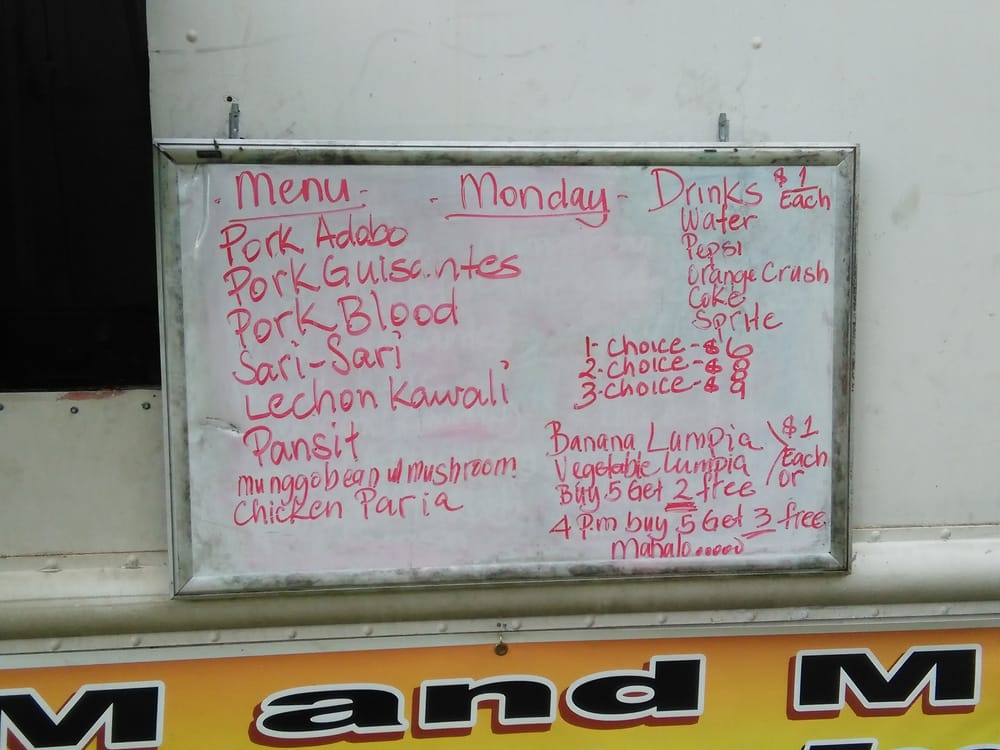 - Menu -
- Monday -
Pork Adobo
Pork Guisantes
Pork Blood
Sari-Sari
Lechon Kawali
Pansit
munggobean w/mushroom
Chicken Paria
Drinks $1 Each
Water
Pepsi
Orange Crush
Coke
Sprite
1- Choice - $6
2- Choice - $8
3- Choice - $9
Banana Lumpia
Vegetable Lumpia
$1 Each or
Buy 5 Get 2 free
4 P.m buy 5 Get 3 free
Mahalo.....
M and M